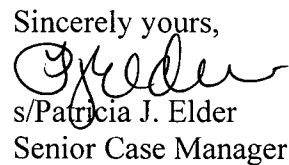 Sincerely yours,
PJElder
s/Patricia J. Elder
Senior Case Manager